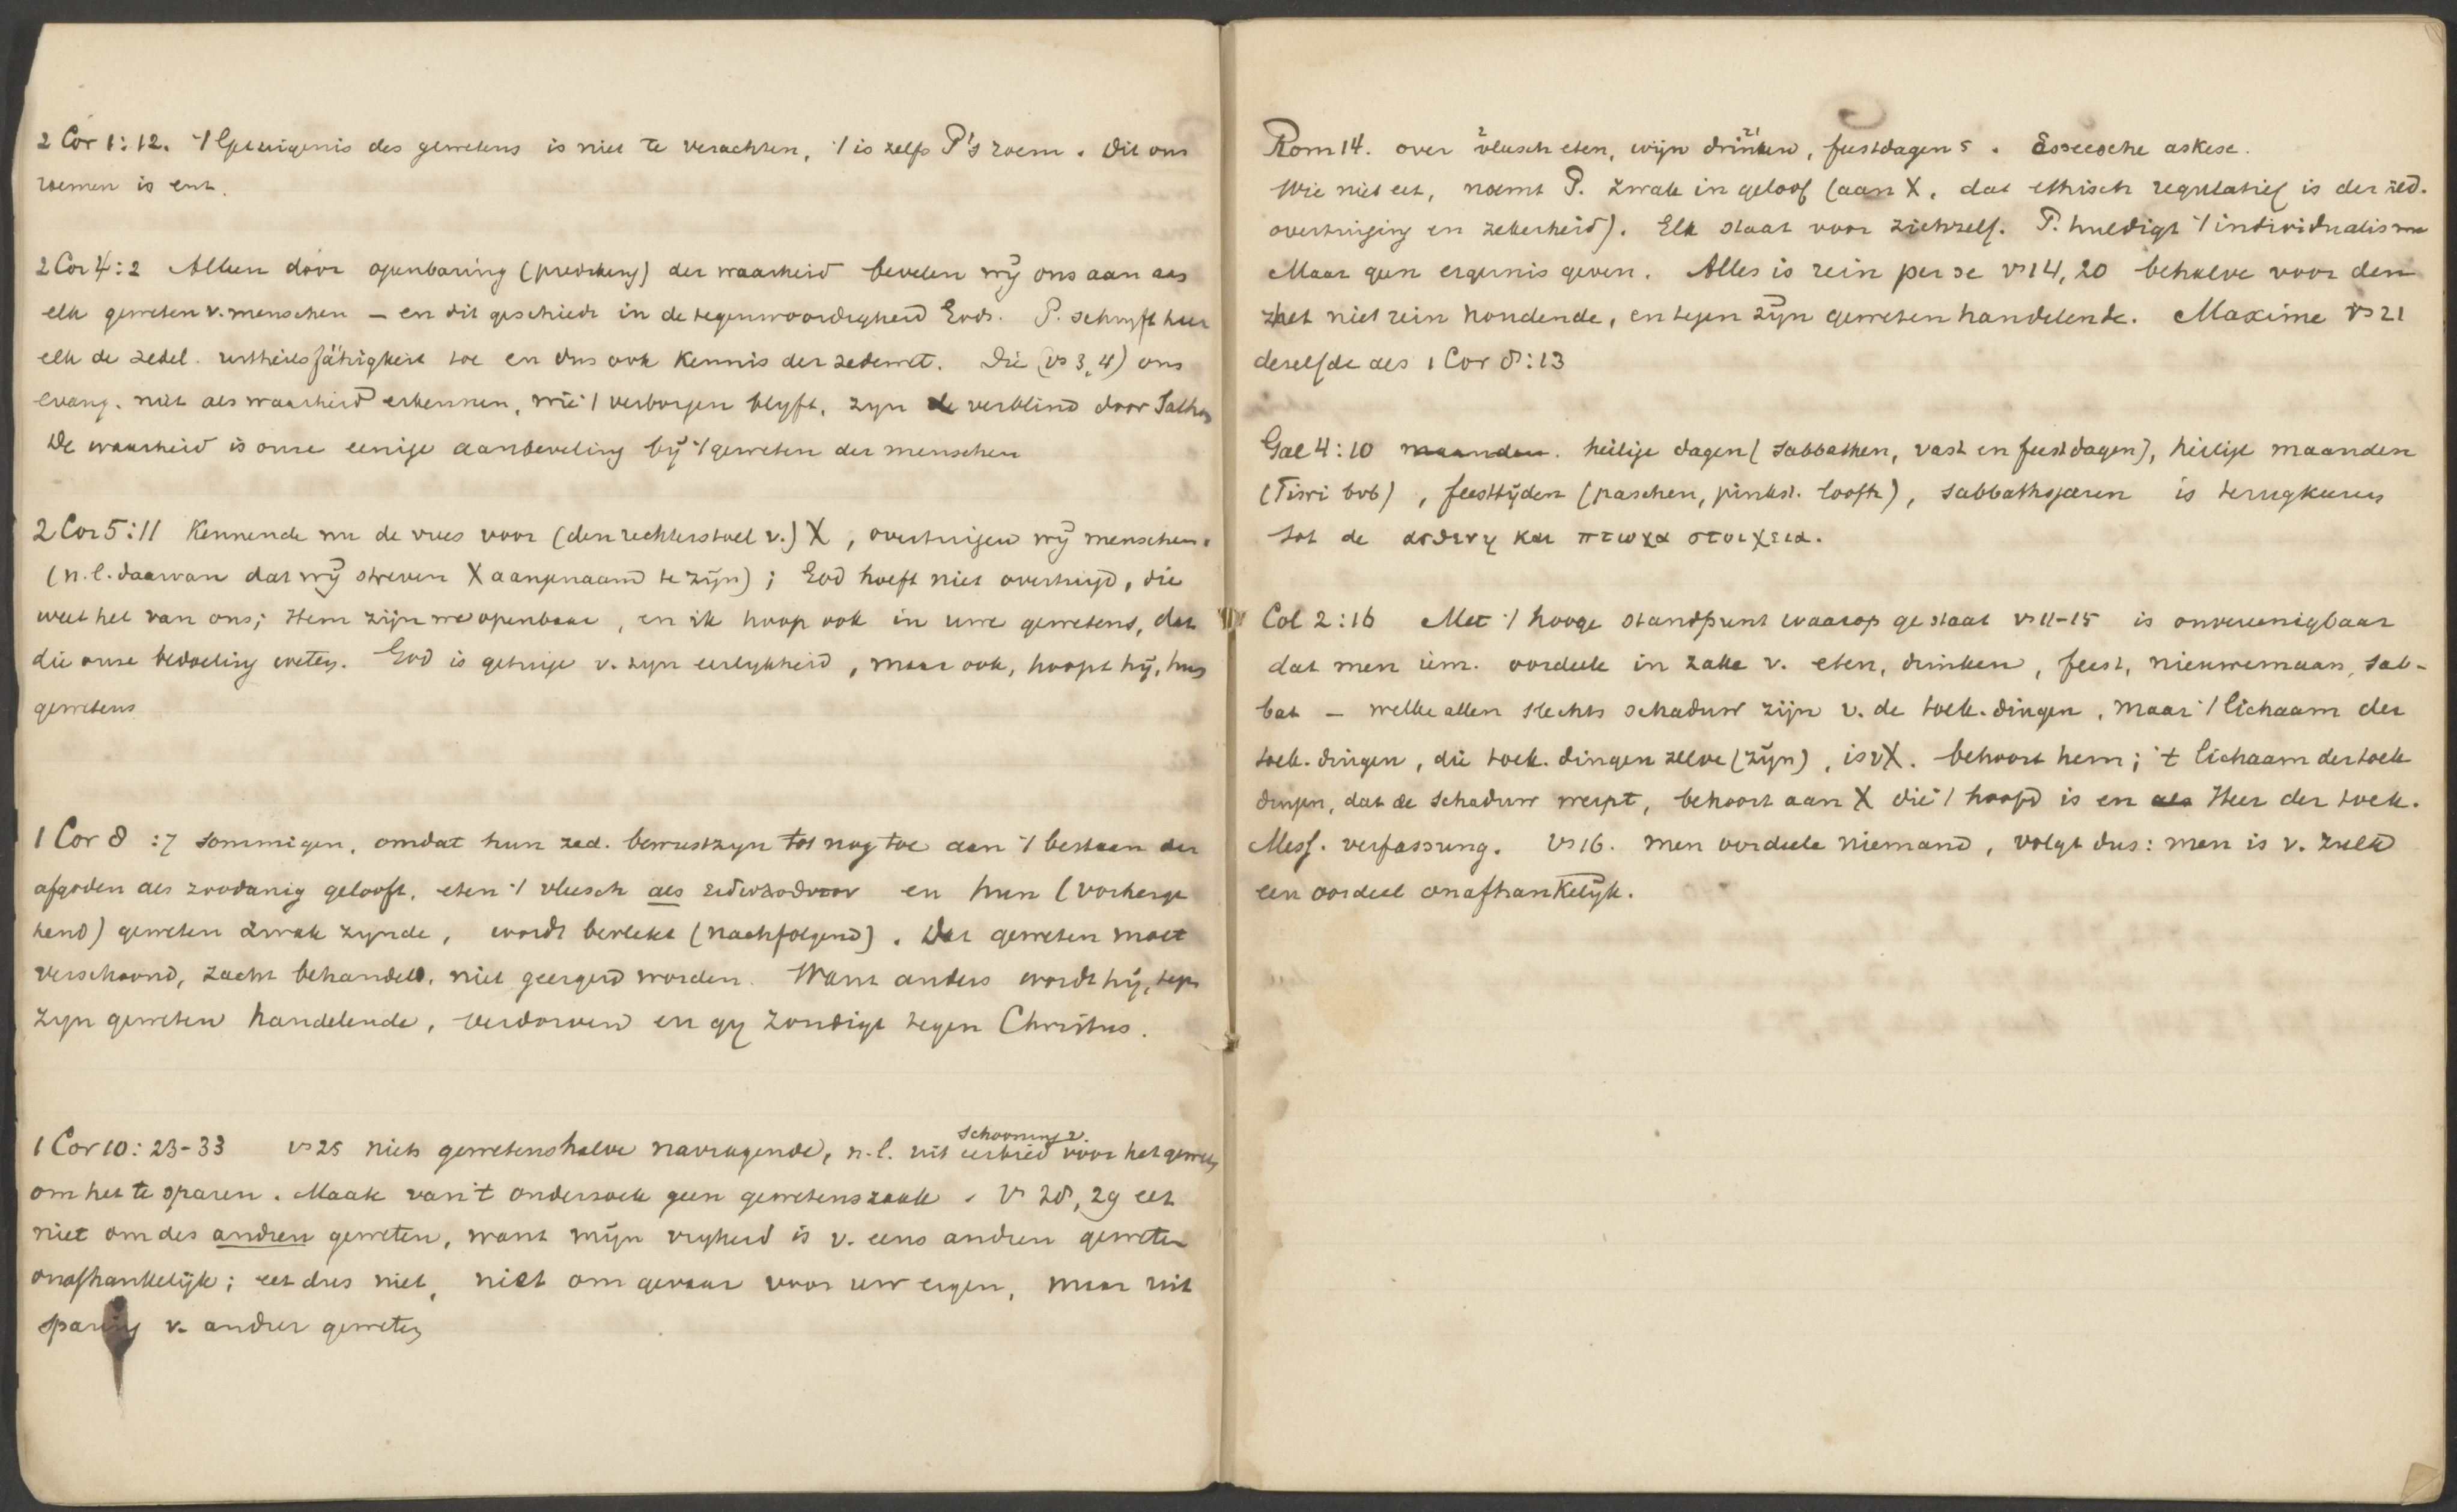 2 Cor 1:12. 't Getuigenis des gewetens is niet te verachten, 't is zelfs P's roem. Dit ons
roemen is enz.
2 Cor 4:2 Alleen door openbaring (prediking) der waarheid bevelen wij ons aan aan
elk geweten v. menschen – en dit geschiedt in de tegenwoordigheid Gods. P. schryft hier
elk de zedel. urtheilsfähigkeit toe en dus ook kennis der zedewet. Die (vs 3, 4) ons
evang. niet als waarheid erkennen, wie 't verborgen blyft, zyn verblind door Satan
De waarheid is onze eenige aanbeveling bij 't geweten der menschen
2 Cor 5:11 Kennende nu de vrees voor (den rechterstoel v.) X, overtuigen wij menschen.
(n.l. daarvan dat wij streven X aangenaam te zijn); God hoeft niet overtuigd, die
weet het van ons; Hem zijn we openbaar, en ik hoop ook in uwe gewetens, dat
die onze bedoeling weten. God is getuige v. zyn eerlykheid, maar ook, hoopt hij, hun
gewetens
1 Cor 8:7 Sommigen, omdat hun zed. bewustzyn tot nog toe aan 't bestaan der
afgoden als zoodanig gelooft, eten 't vleesch als ειδωλοθυτον en hun (voorherge
hend) geweten zwak zynde, wordt bevlekt (nachfolgend). Dat geweten moet
verschoond, zacht behandeld, niet geergerd worden. Want anders wordt hij, tegen
zyn geweten handelende, verdorven en gy zondigt tegen Christus.
1 Cor 10: 23-33 vs 25 niets gewetenshalve navragende, n.l. uit eerbied voor het geweten
schooning v.
om het te sparen. Maak van 't onderzoek geen gewetenszaak. vs 28, 29 eet
niet om des andren geweten, want mijn vryheid is v. eens andren geweten
onafhankelijk; eet dus niet, niet om gevaar voor uw eigen, maar uit
sparing v. andrer geweten
Rom 14. over 2 vleesch eten, wijn drinken 21, feestdagen 5. Esseesche askese.
Wie niet eet, noemt P. zwak in geloof (aan X, dat ethisch regulatief is der zed.
overtuiging en zekerheid). Elk staat voor zichzelf. P. huldigt 't individualisme
Maar geen ergernis geven. Alles is rein per se vs 14, 20 behalve voor den
het niet rein houdende, en tegen zijn geweten handelende. Maxime vs 21
dezelfde als 1 Cor 8:13
Gal 4:10 maanden. heilige dagen (sabbathen, vast en feestdagen), heilige maanden
(Tisri bvb), feesttijden (paschen, pinkst. loofh), sabbathsjaren is terugkeeren
tot de ασθενη και πτωχα στοιχεια.
Col 2:16 Met 't hooge standpunt waarop ge staat vs 11-15 is onvereenigbaar
dat men iem. oordeele in zake v. eten, drinken, feest, nieuwemaan, sab-
bat – welke allen slechts schaduw zijn v. de toek. dingen, maar 't lichaam der
toek. dingen, die toek. dingen zelve (zijn), is v X. behoort hem; 't lichaam der toek
dingen, dat de schaduw werpt, behoort aan X die 't hoofd is en als Heer der toek.
Mess. verfassung. vs 16. men oordeele niemand, volgt dus: men is v. zulk
een oordeel onafhankelijk.